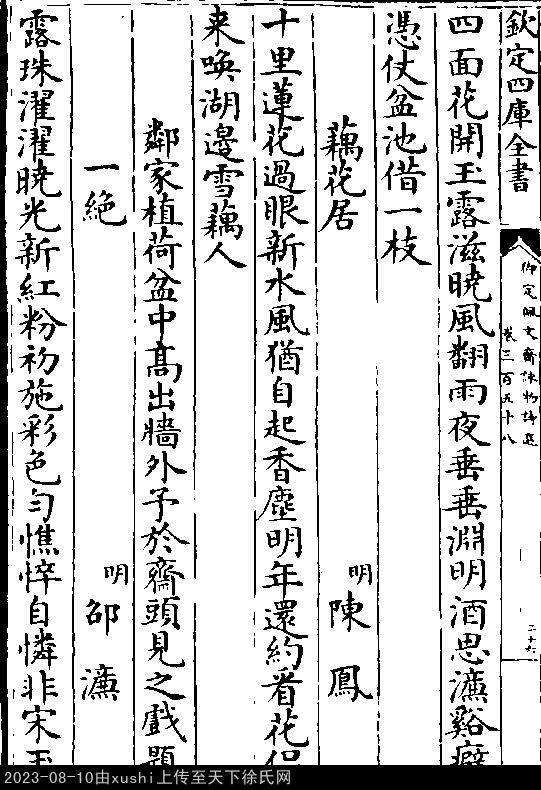 欽定四庫全書
御定佩文齋詠物詩選
卷三百五十八
二十六
四面花開玉露滋曉風翻雨夜垂垂淵明酒思濂谿癖
憑仗盆池借一枝
藕花居
明
陳鳳
十里蓮花過眼新水風猶自起香塵明年還約看花侣
来喚湖邊雪藕人
鄰家植荷盆中髙出牆外予於齋頭見之戲題
一絶
明
邵濂
露珠濯濯曉光新紅粉初施彩色勻憔悴自憐非宋玉
2023-08-10由xushi上传至天下徐氏网